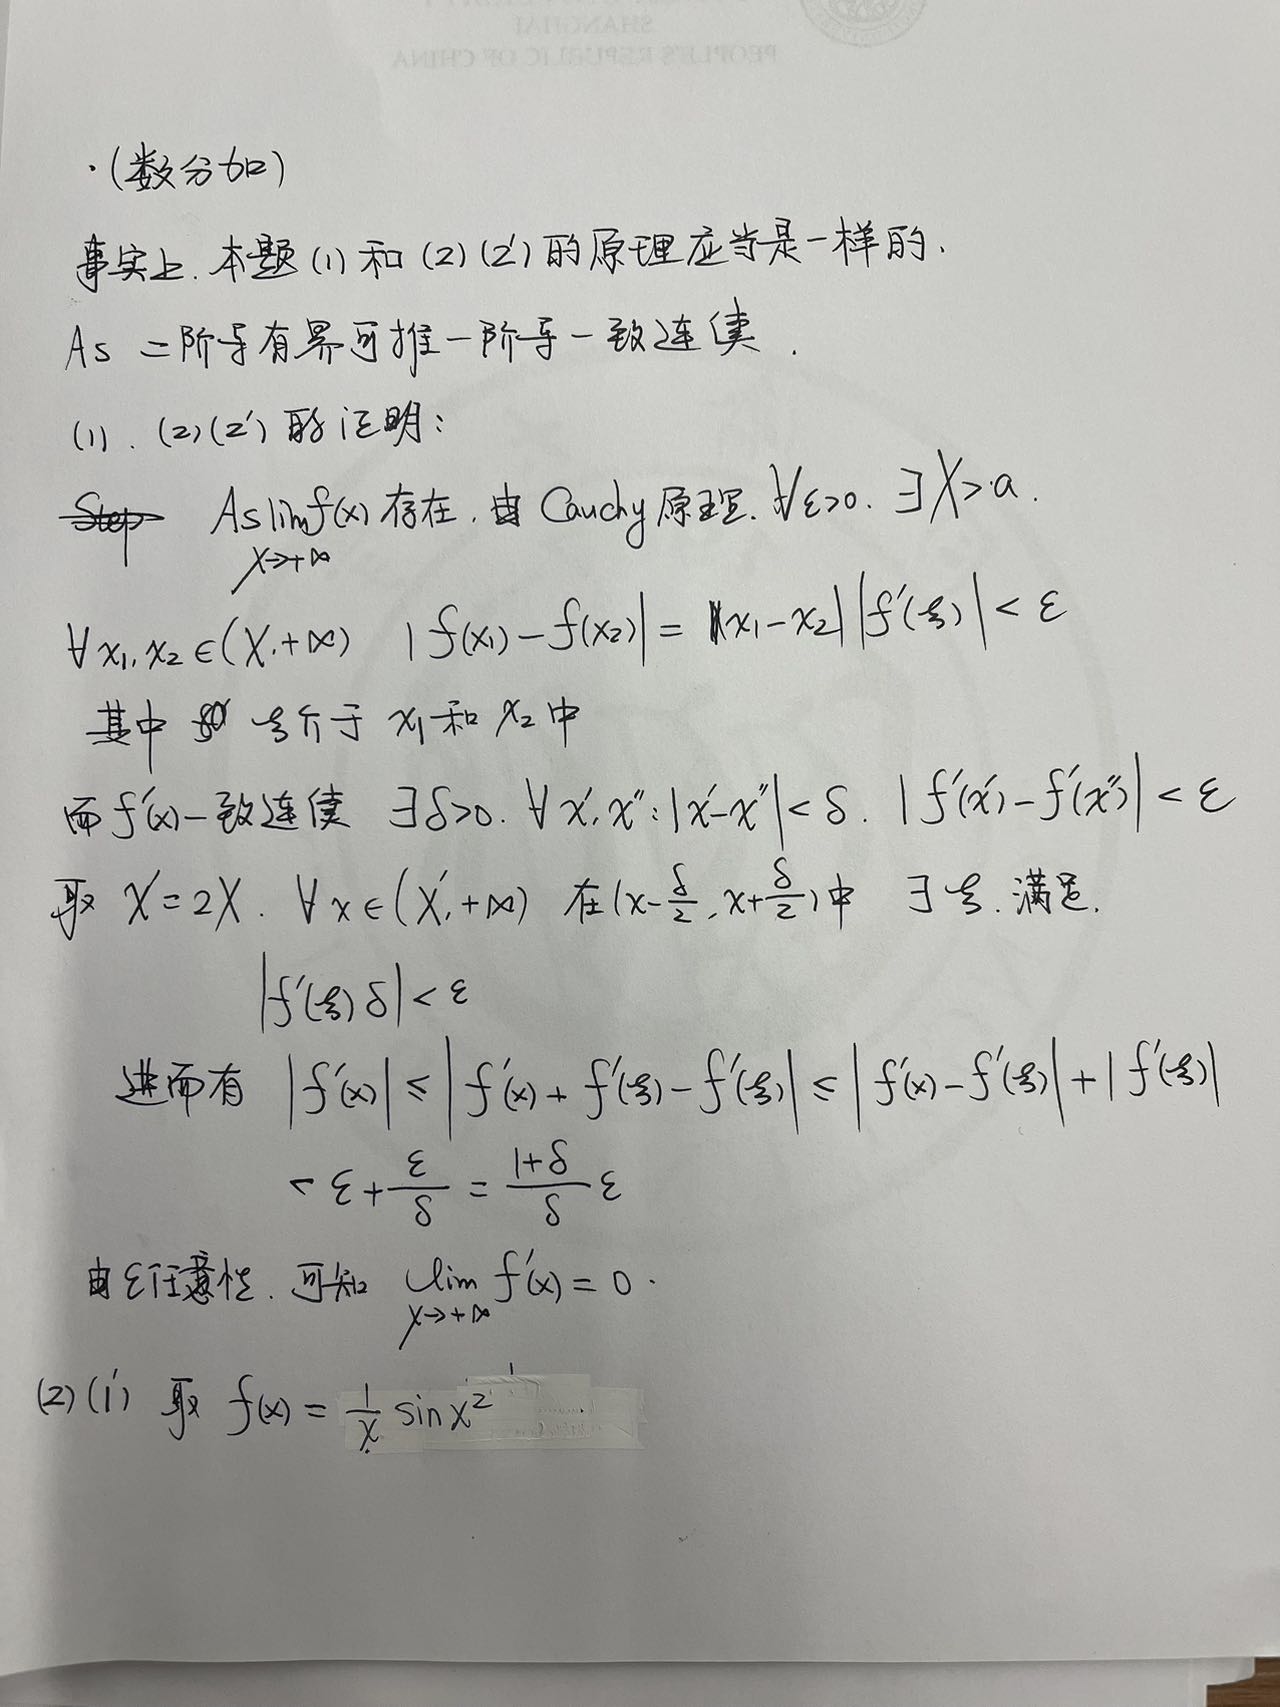 SHANGHAI
PEOPLE'S REPUBLIC OF CHINA
·(数分加)
事实上.本题(1)和(2)(2')的原理应当是一样的.
As 二阶导有界可推一阶导一致连续.
(1).(2)(2')的证明:
Step As lim f(x) 存在.由Cauchy原理.∀ε>0.∃X>a.
x→+∞
∀x₁,x₂∈(X,+∞) |f(x₁)-f(x₂)|=|x₁-x₂||f'(ξ)|<ε
其中 ξ介于x₁和x₂中
而f'(x)一致连续 ∃δ>0.∀x',x'':|x'-x''|<δ.|f'(x')-f'(x'')|<ε
取X'=2X.∀x∈(X',+∞) 在(x-δ/2,x+δ/2)中 ∃ξ.满足.
|f'(ξ)δ|<ε
进而有 |f'(x)|≤|f'(x)+f'(ξ)-f'(ξ)|≤|f'(x)-f'(ξ)|+|f'(ξ)|
<ε+ε/δ=(1+δ)/δ ε
由ε任意性.可知 lim f'(x)=0.
x→+∞
(2)(1') 取 f(x)=1/x sinx²